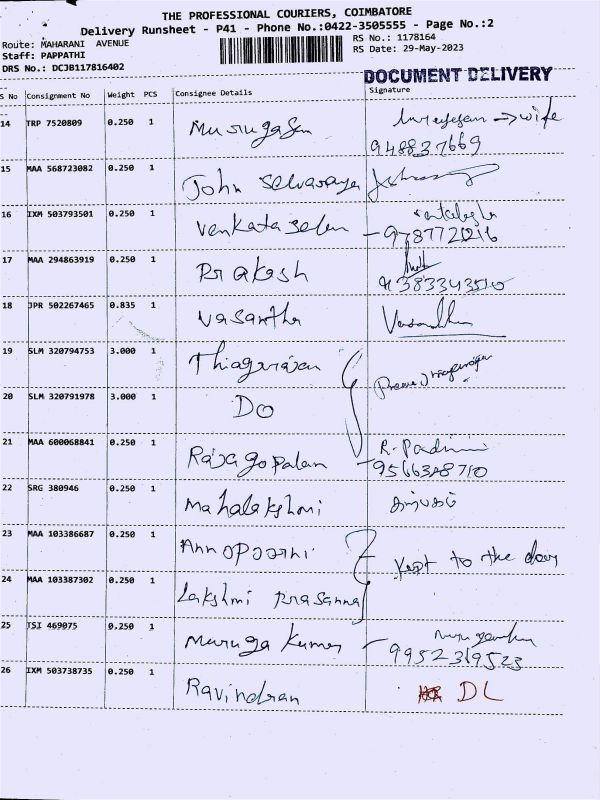 THE PROFESSIONAL COURIERS, COIMBATORE
Delivery Runsheet - P41 - Phone No.:0422-3505555 - Page No.:2
Route: MAHARANI AVENUE RS No.: 1178164
Staff: PAPPATHI RS Date: 29-May-2023
DRS No.: DCJB117816402
DOCUMENT DELIVERY
S No Consignment No Weight PCS Consignee Details Signature
14 TRP 7520809 0.250 1 Murugasen → wife
948837669
15 MAA 568723082 0.250 1 John Selvaraya
16 IXM 503793501 0.250 1 Venkataselan
9787721216
17 MAA 294863919 0.250 1 Prakash
9383343510
18 JPR 502267465 0.835 1 Vasantha
19 SLM 320794753 3.000 1 Thiagarajan
20 SLM 320791978 3.000 1 DO
21 MAA 600068841 0.250 1 Rajagopalan R. Padmini
9566328710
22 SRG 380946 0.250 1 Mahalakshmi
23 MAA 103386687 0.250 1 Kept to the door
24 MAA 103387302 0.250 1 Lakshmi Prasanna
25 TSI 469075 0.250 1 Muruga Kumar
9952319523
26 IXM 503738735 0.250 1 Ravindran DL